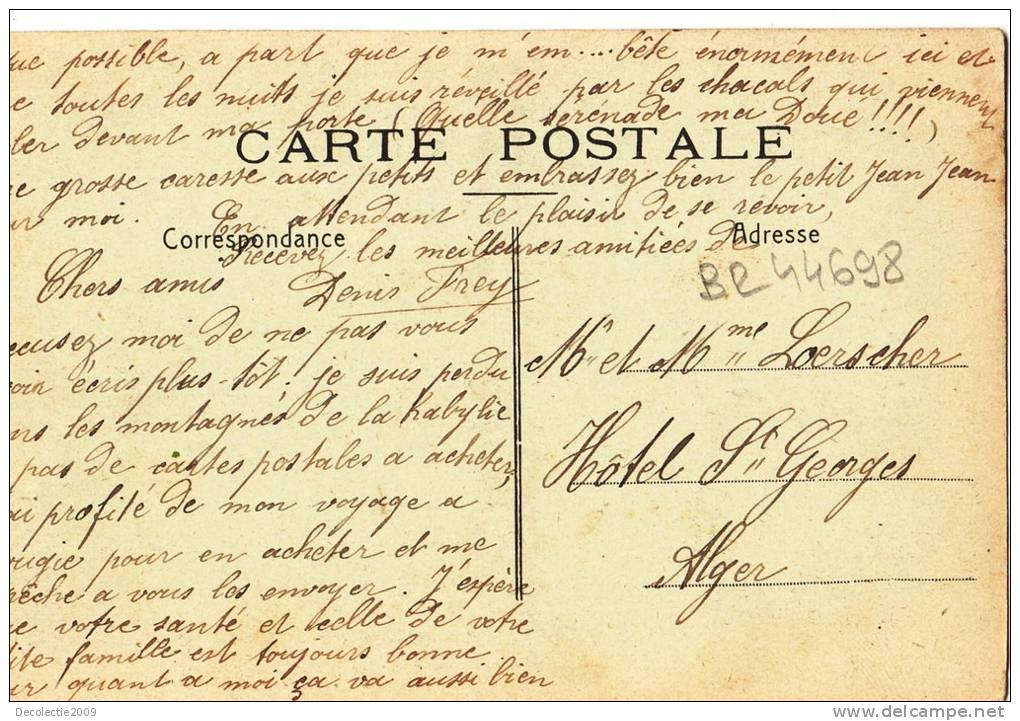 ue possible, a part que je m'em....bête énormément ici et
e toutes les nuits je suis réveillé par les chacals qui viennent
ler devant ma porte (Quelle sérénade ma Doué!!!!)
e grosse caresse aux petits et embrassez bien le petit Jean Jean
ur moi. En attendant le plaisir de se revoir,
Recevez les meilleures amitiées de
Denis Frey
CARTE POSTALE
Correspondance
Chers amis
cusez moi de ne pas vous
oir écris plus-tôt. je suis perdu
ns les montagnes de la Kabylie
pas de cartes postales a acheter,
ai profité de mon voyage a
ougie pour en achéter et me
êche a vous les envoyer. J'espère
e votre santé et celle de votre
ite famille est toujours bonne
ur quant a moi ça va aussi bien
Adresse
BR 44698
Mr et Mme Loerscher
Hôtel St Georges
Alger
Decolectie2009
delcampe.net